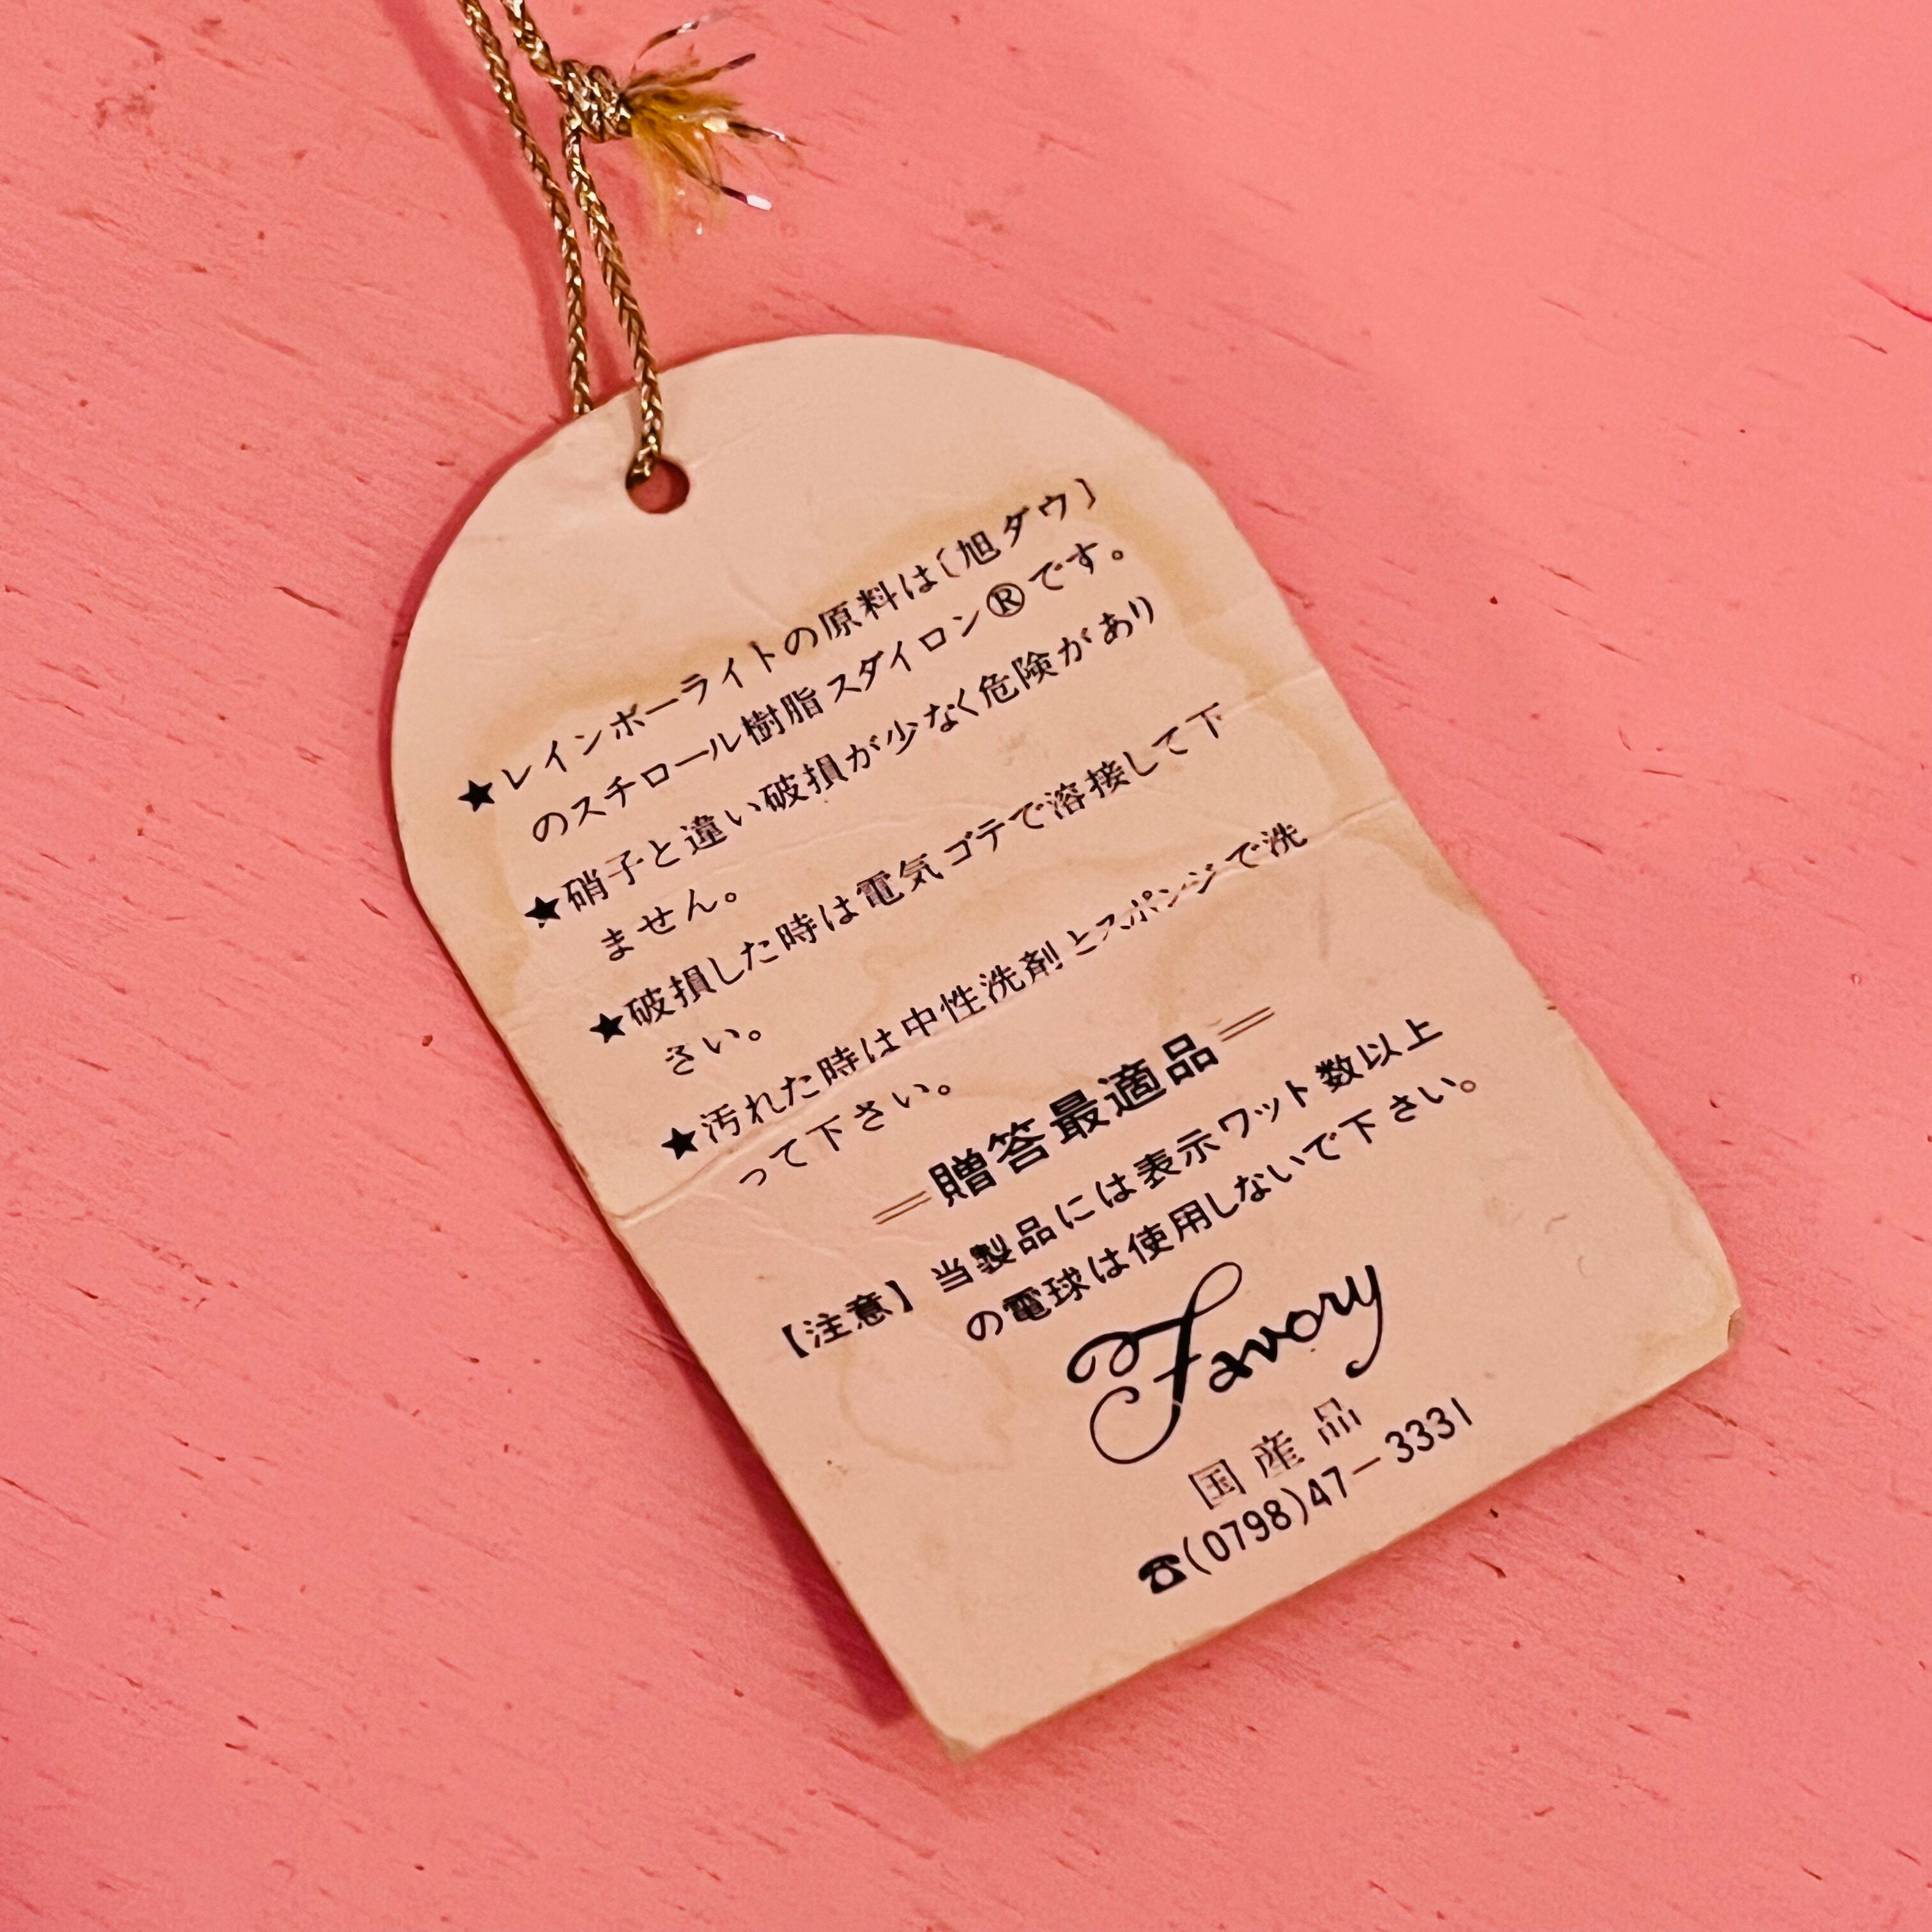 ★レインボーライトの原料は〔旭ダウ〕
のスチロール樹脂スダイロン®です。
★硝子と違い破損が少なく危険があり
ません。
★破損した時は電気ゴテで溶接して下
さい。
★汚れた時は中性洗剤とスポンジで洗
って下さい。
＝贈答最適品＝
【注意】当製品には表示ワット数以上
の電球は使用しないで下さい。
Favory
国産品
☎(0798)47－3331